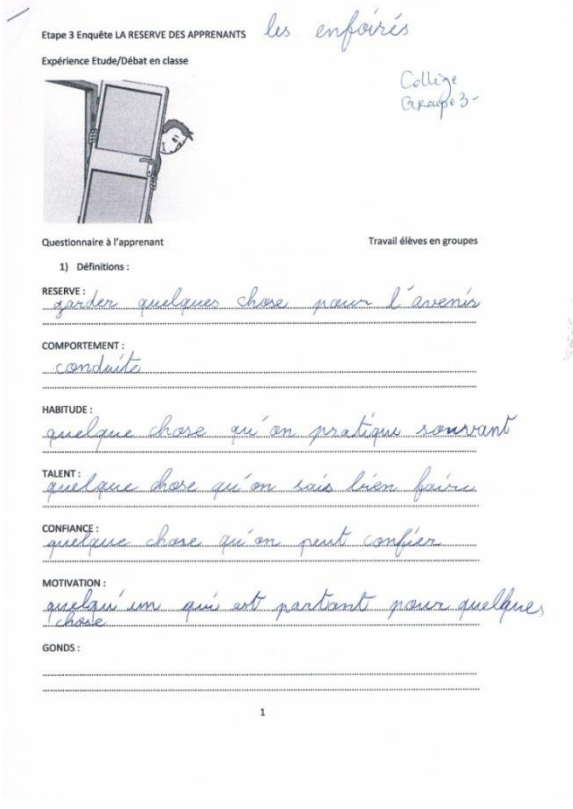 Etape 3 Enquête LA RESERVE DES APPRENANTS les enfoirés
Expérience Etude/Débat en classe
Collège
Groupe 3-
Questionnaire à l'apprenant Travail élèves en groupes
1) Définitions :
RESERVE :
garder quelques chose pour l'avenir
COMPORTEMENT :
conduite
HABITUDE :
quelque chose qu'on pratique souvant
TALENT :
quelque chose qu'on sais bien faire
CONFIANCE :
quelque chose qu'on peut confier
MOTIVATION :
quelqu'un qui est partant pour quelques
chose
GONDS :
1